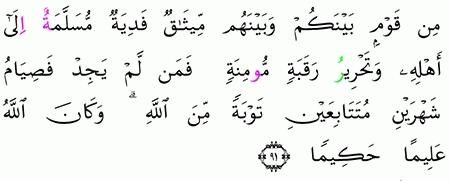 مِن قَوْمِۢ بَيْنَكُمْ وَبَيْنَهُم مِّيثَٰقٌ فَدِيَةٌ مُّسَلَّمَةٌ اِلَىٰٓ
أَهْلِهِۦ وَتَحْرِيرُ رَقَبَةٖ مُّومِنَةٖ فَمَن لَّمْ يَجِدْ فَصِيَامُ
شَهْرَيْنِ مُتَتَابِعَيْنِ تَوْبَةٗ مِّنَ اَ۬للَّهِ ۗ وَكَانَ اَ۬للَّهُ
عَلِيمًا حَكِيمٗا ٩١